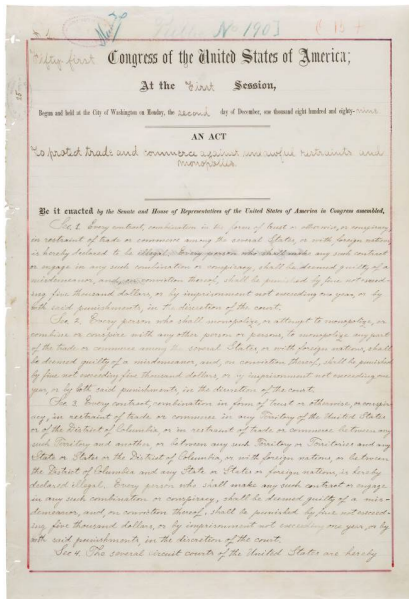 No 1903
Fifty-first Congress of the United States of America;
At the First Session,
Begun and held at the City of Washington on Monday, the second day of December, one thousand eight hundred and eighty-nine
AN ACT
To protect trade and commerce against unlawful restraints and
monopolies
Be it enacted by the Senate and House of Representatives of the United States of America in Congress assembled,
Sec. 1. Every contract, combination in the form of trust or otherwise, or conspiracy,
in restraint of trade or commerce among the several States, or with foreign nations,
is hereby declared to be illegal. Every person who shall make any such contract
or engage in any such combination or conspiracy, shall be deemed guilty of a
misdemeanor, and, on conviction thereof, shall be punished by fine not exceed-
ing five thousand dollars, or by imprisonment not exceeding one year, or by
both said punishments, in the discretion of the court.
Sec. 2. Every person who shall monopolize, or attempt to monopolize, or
combine or conspire with any other person or persons, to monopolize any part
of the trade or commerce among the several States, or with foreign nations, shall
be deemed guilty of a misdemeanor, and, on conviction thereof, shall be punished
by fine not exceeding five thousand dollars, or by imprisonment not exceeding one
year, or by both said punishments, in the discretion of the court.
Sec. 3. Every contract, combination in form of trust or otherwise, or conspir-
acy, in restraint of trade or commerce in any Territory of the United States
or of the District of Columbia, or in restraint of trade or commerce between any
such Territory and another, or between any such Territory or Territories and any
State or States or the District of Columbia, or with foreign nations, or between
the District of Columbia and any State or States or foreign nations, is hereby
declared illegal. Every person who shall make any such contract or engage
in any such combination or conspiracy, shall be deemed guilty of a mis-
demeanor, and, on conviction thereof, shall be punished by fine not exceed-
ing five thousand dollars, or by imprisonment not exceeding one year, or by
both said punishments, in the discretion of the court.
Sec. 4. The several circuit courts of the United States are hereby